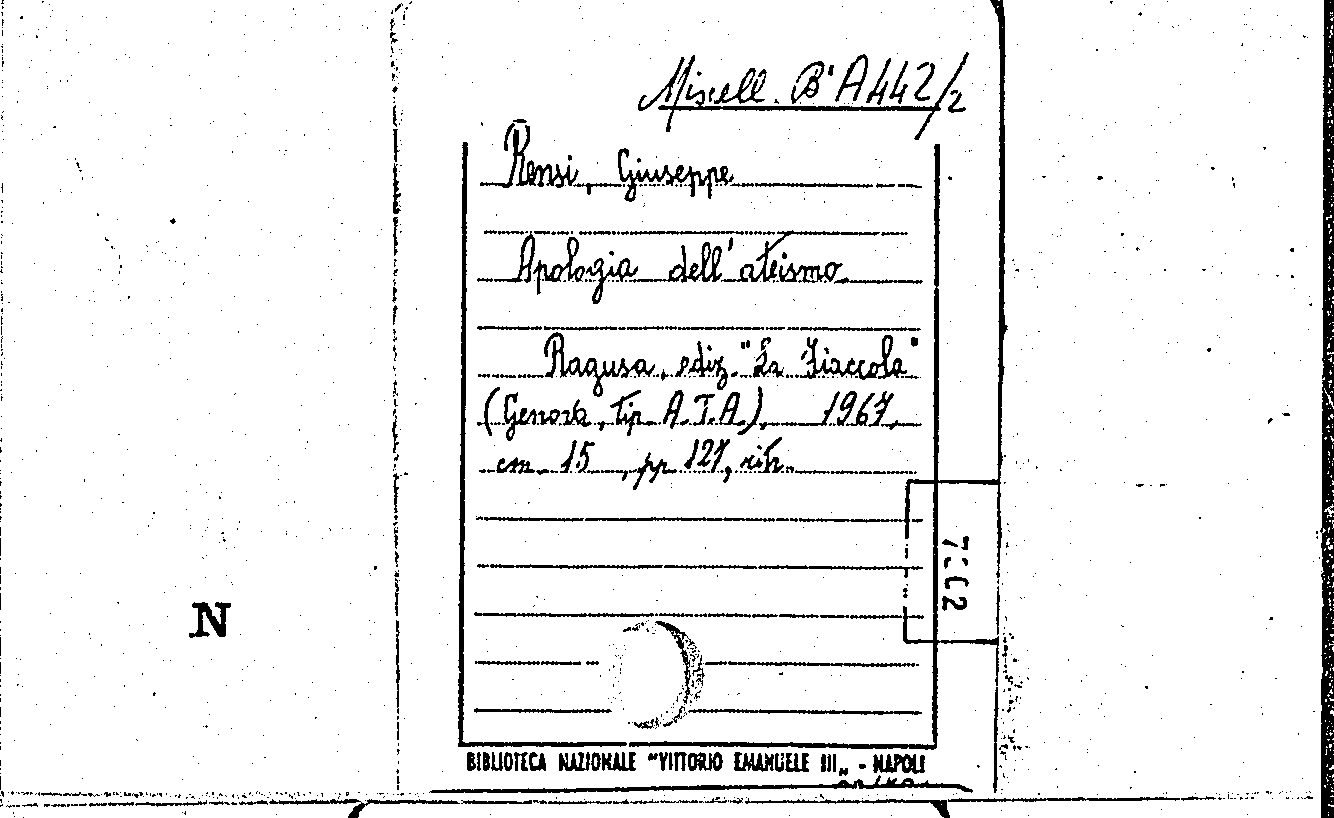 Miscell. B^a A442/2
Rensi, Giuseppe
Apologia dell'ateismo
Ragusa, ediz. "La Fiaccola"
(Genova, tip. A.T.A.), 1967,
cm. 15, pp 127, rih.
7002
N
BIBLIOTECA NAZIONALE "VITTORIO EMANUELE III„ - NAPOLI